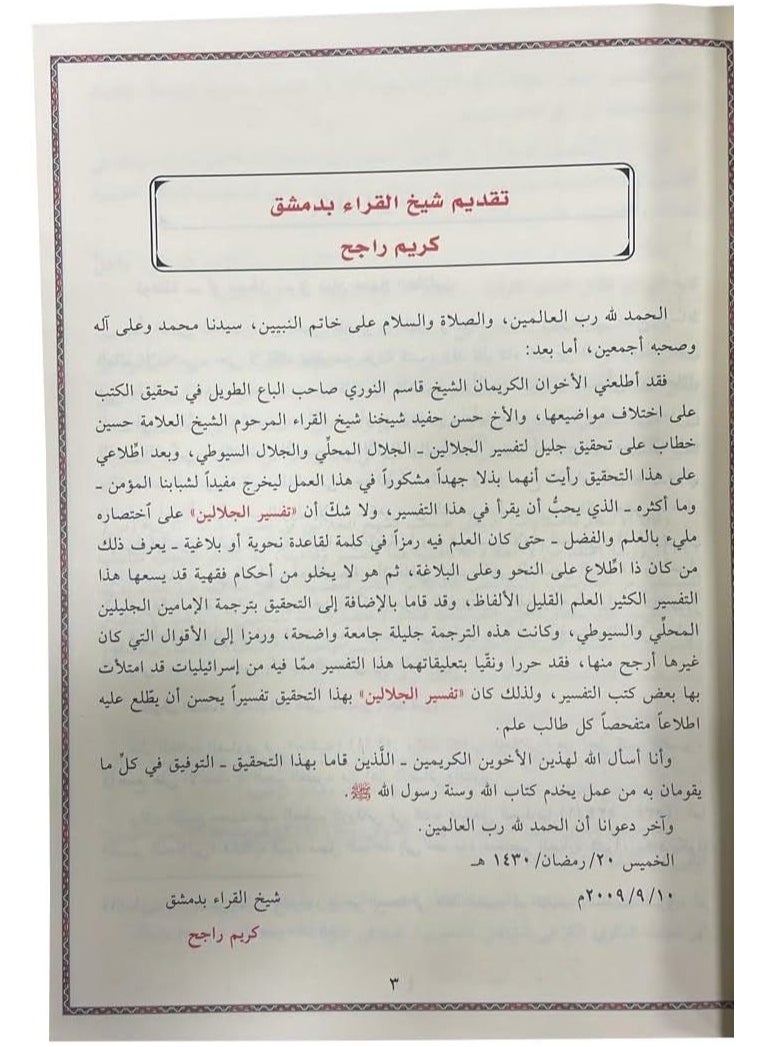 تقديم شيخ القراء بدمشق
كريم راجح
الحمد لله رب العالمين، والصلاة والسلام على خاتم النبيين، سيدنا محمد وعلى آله
وصحبه أجمعين، أما بعد:
فقد أطلعني الأخوان الكريمان الشيخ قاسم النوري صاحب الباع الطويل في تحقيق الكتب
على اختلاف مواضيعها، والأخ حسن حفيد شيخنا شيخ القراء المرحوم الشيخ العلامة حسين
خطاب على تحقيق جليل لتفسير الجلالين ـ الجلال المحلّي والجلال السيوطي، وبعد اطّلاعي
على هذا التحقيق رأيت أنهما بذلا جهداً مشكوراً في هذا العمل ليخرج مفيداً لشبابنا المؤمن ـ
وما أكثره ـ الذي يحبُّ أن يقرأ في هذا التفسير، ولا شكّ أن «تفسير الجلالين» على ٱختصاره
مليء بالعلم والفضل ـ حتى كان العلم فيه رمزاً في كلمة لقاعدة نحوية أو بلاغية ـ يعرف ذلك
من كان ذا اطّلاع على النحو وعلى البلاغة، ثم هو لا يخلو من أحكام فقهية قد يسعها هذا
التفسير الكثير العلم القليل الألفاظ، وقد قاما بالإضافة إلى التحقيق بترجمة الإمامين الجليلين
المحلّي والسيوطي، وكانت هذه الترجمة جليلة جامعة واضحة، ورمزا إلى الأقوال التي كان
غيرها أرجح منها، فقد حررا ونقّيا بتعليقاتهما هذا التفسير ممّا فيه من إسرائيليات قد امتلأت
بها بعض كتب التفسير، ولذلك كان «تفسير الجلالين» بهذا التحقيق تفسيراً يحسن أن يطّلع عليه
اطلاعاً متفحصاً كل طالب علم.
وأنا أسأل الله لهذين الأخوين الكريمين ـ اللَّذين قاما بهذا التحقيق ـ التوفيق في كلِّ ما
يقومان به من عمل يخدم كتاب الله وسنة رسول الله ﷺ.
وآخر دعوانا أن الحمد لله رب العالمين.
الخميس ٢٠/ رمضان/ ١٤٣٠ هـ
١٠/ ٩/ ٢٠٠٩م
شيخ القراء بدمشق
كريم راجح
٣